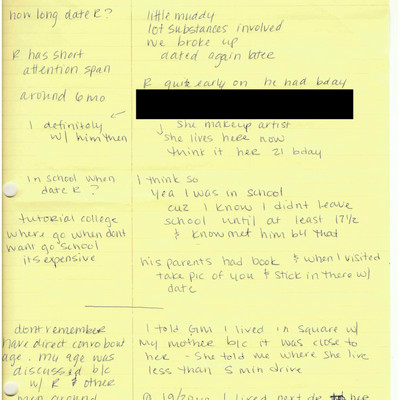 how long date R?
little muddy
lot substances involved
we broke up
dated again later
R has short
attention span
R quite early on he had bday
around 6 mo
I definitely
w/ him then
she makeup artist
she lives here now
think it her 21 bday
in school when
date R?
I think so
Yea I was in school
cuz I know I didnt leave
school until at least 17 1/2
& know met him b4 that
tutorial college
where go when dont
want go school
its expensive
his parents had book & when I visited
take pic of you & stick in there w/
date
dont remember
have direct convo bout
age. my age was
discussed b/c
w/ R & other
men around
I told GM I lived in square w/
my mother b/c it was close to
her - she told me where she live
less than 5 min drive
I lived next
her